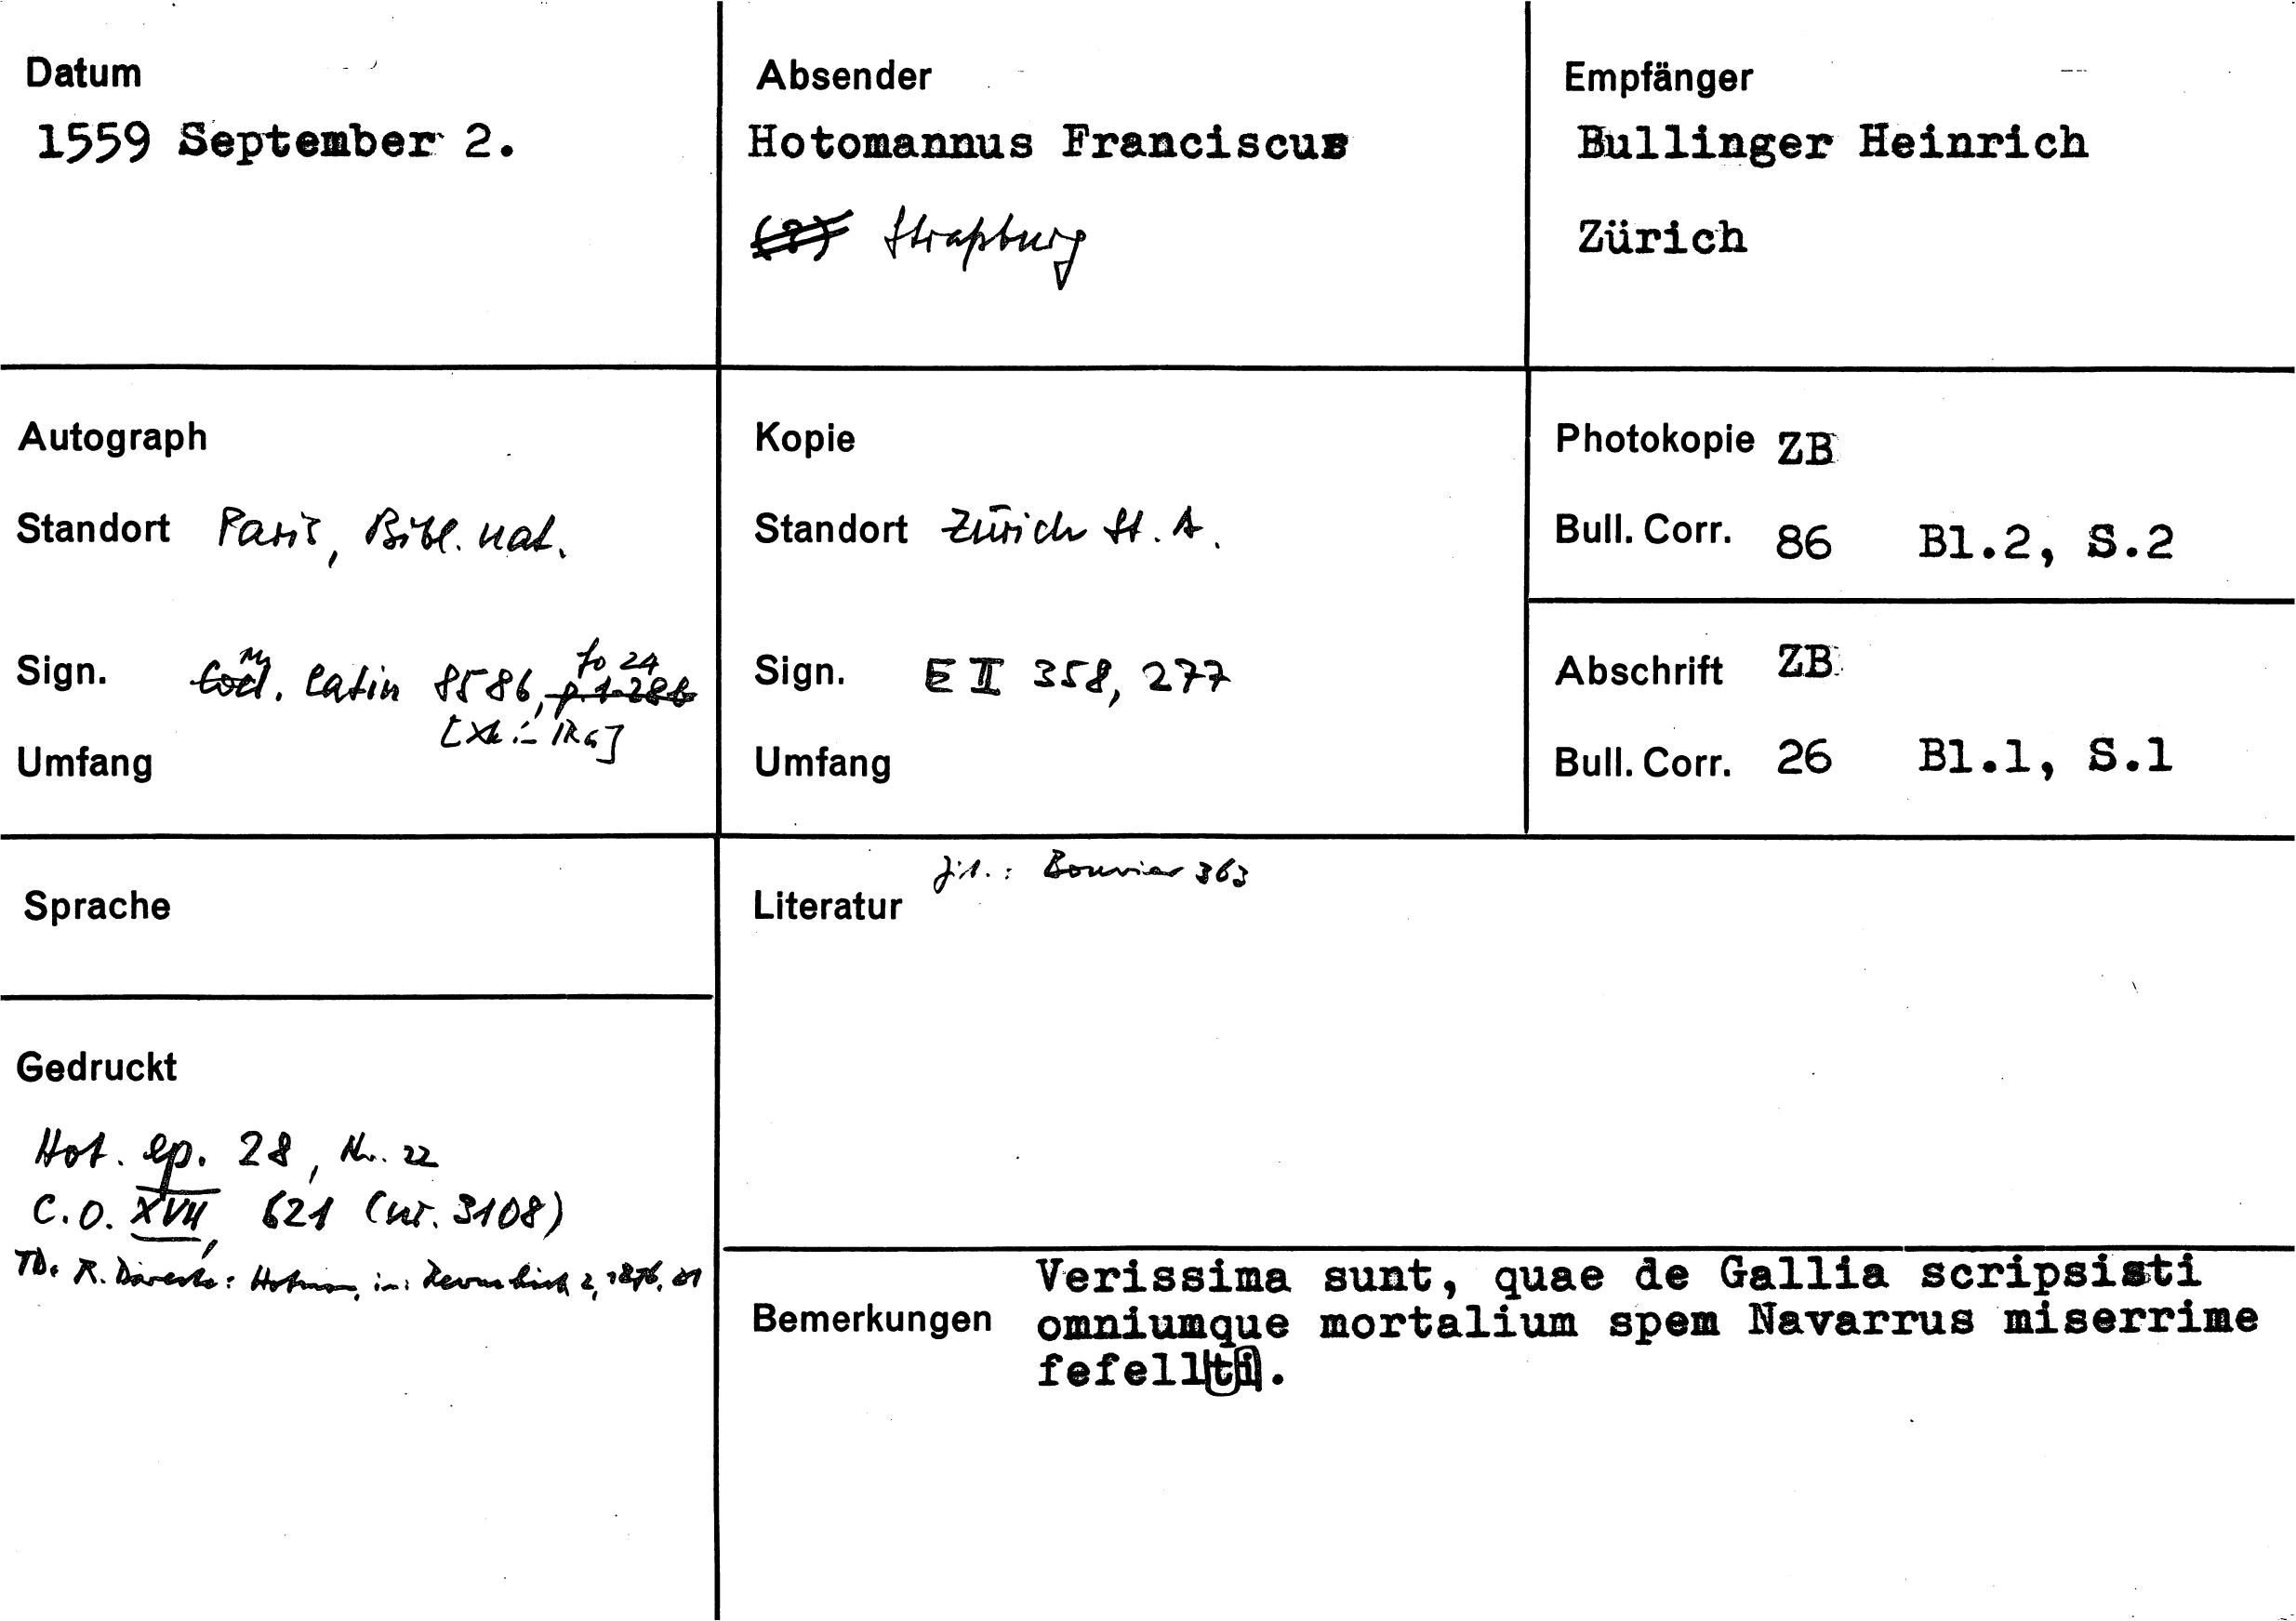 Datum
1559 September 2.
Absender
Hotomannus Franciscus
(?) Straßburg
Empfänger
Bullinger Heinrich
Zürich
Autograph
Standort Paris, Bibl. nat.
Sign. Cod. latin 8586, p. 1-286 fo 24
Umfang
Kopie
Standort Zürich St. A.
Sign. E II 358, 277
Umfang
Photokopie ZB
Bull. Corr. 86 Bl.2, S.2
Abschrift ZB
Bull. Corr. 26 Bl.1, S.1
Sprache
Literatur zit.: Bouvier 363
Gedruckt
Hot. ep. 28, Nr. 22
C.O. XVII, 621 (nr. 3108)
TD. R. Dareste: Hotman, in: Revue hist. 2, 1876,
Bemerkungen
Verissima sunt, quae de Gallia scripsisti
omniumque mortalium spem Navarrus miserrime
fefellti.